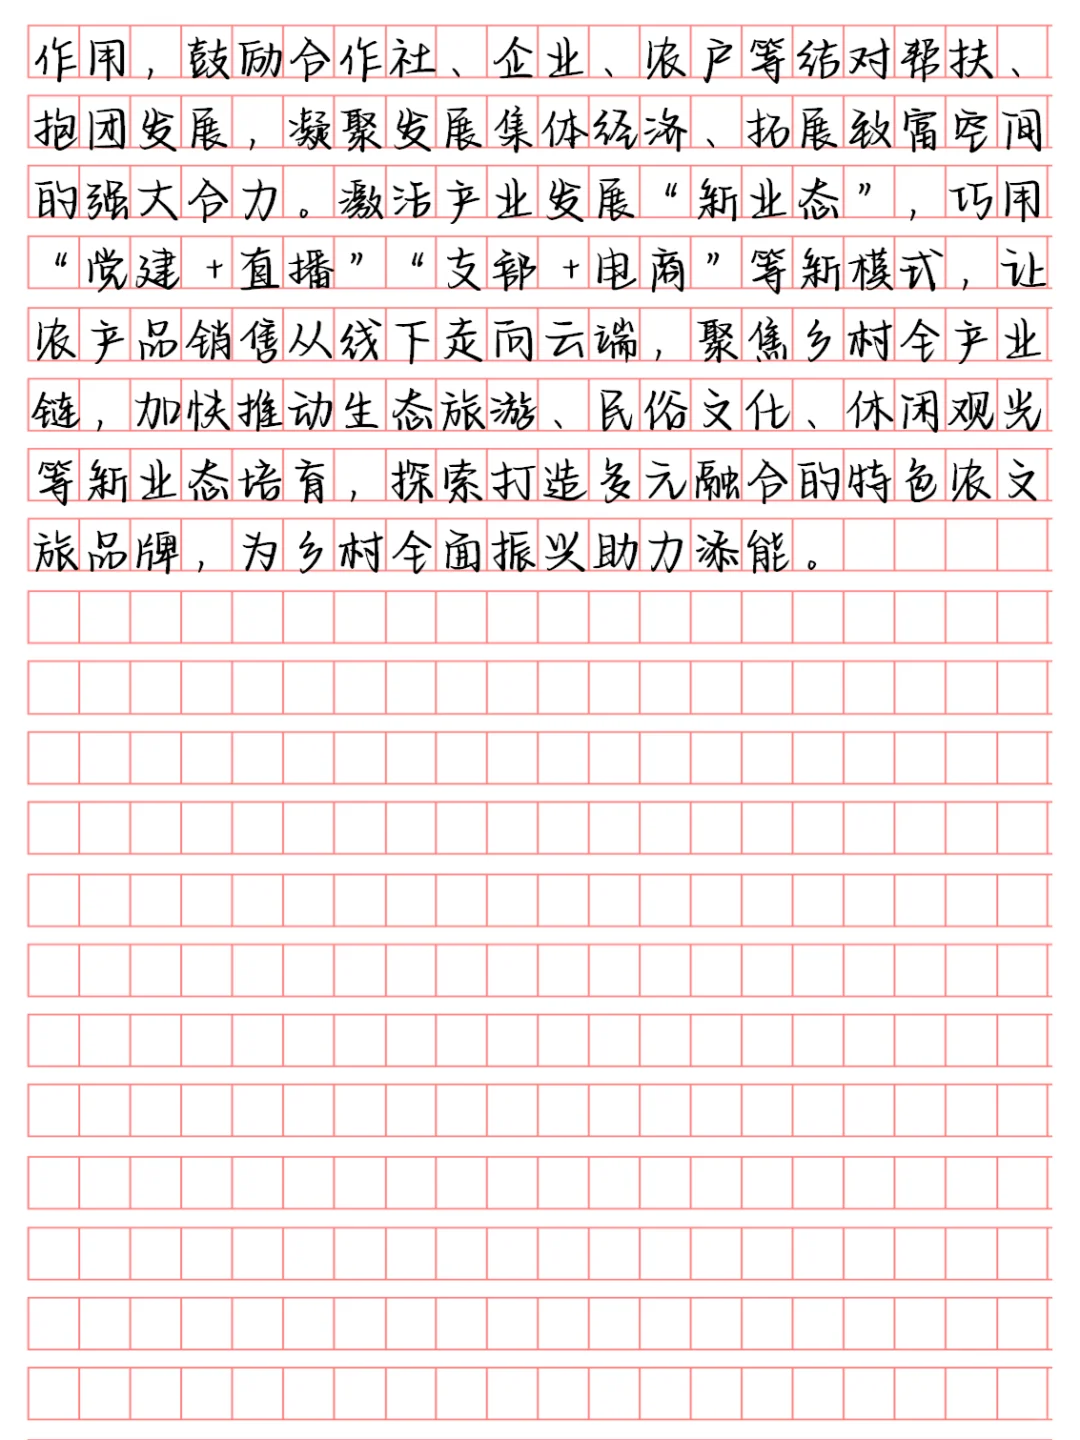 作用，鼓励合作社、企业、农户等结对帮扶、
抱团发展，凝聚发展集体经济、拓展致富空间
的强大合力。激活产业发展“新业态”，巧用
“党建+直播”“支部+电商”等新模式，让
农产品销售从线下走向云端，聚焦乡村全产业
链，加快推动生态旅游、民俗文化、休闲观光
等新业态培育，探索打造多元融合的特色农文
旅品牌，为乡村全面振兴助力添能。